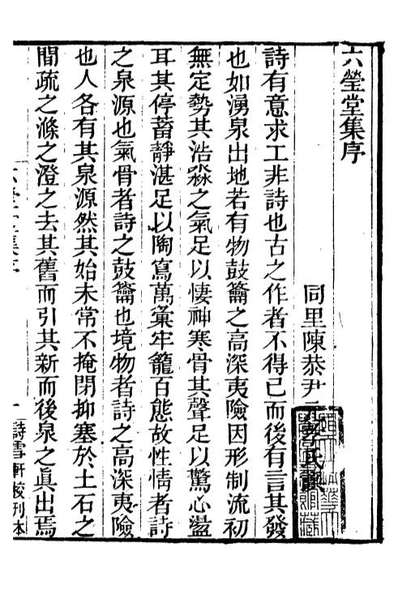 六瑩堂集序
同里陳恭尹
詩有意求工非詩也古之作者不得已而後有言其發
也如湧泉出地若有物鼓籥之高深夷險因形制流初
無定勢其浩淼之氣足以悽神寒骨其聲足以驚心盪
耳其停蓄靜湛足以陶寫萬彙牢籠百態故性情者詩
之泉源也氣骨者詩之鼓籥也境物者詩之高深夷險
也人各有其泉源然其始未常不掩閉抑塞於土石之
間疏之滌之澄之去其舊而引其新而後泉之眞出焉
六瑩堂集序
一
詩雪軒校刊本